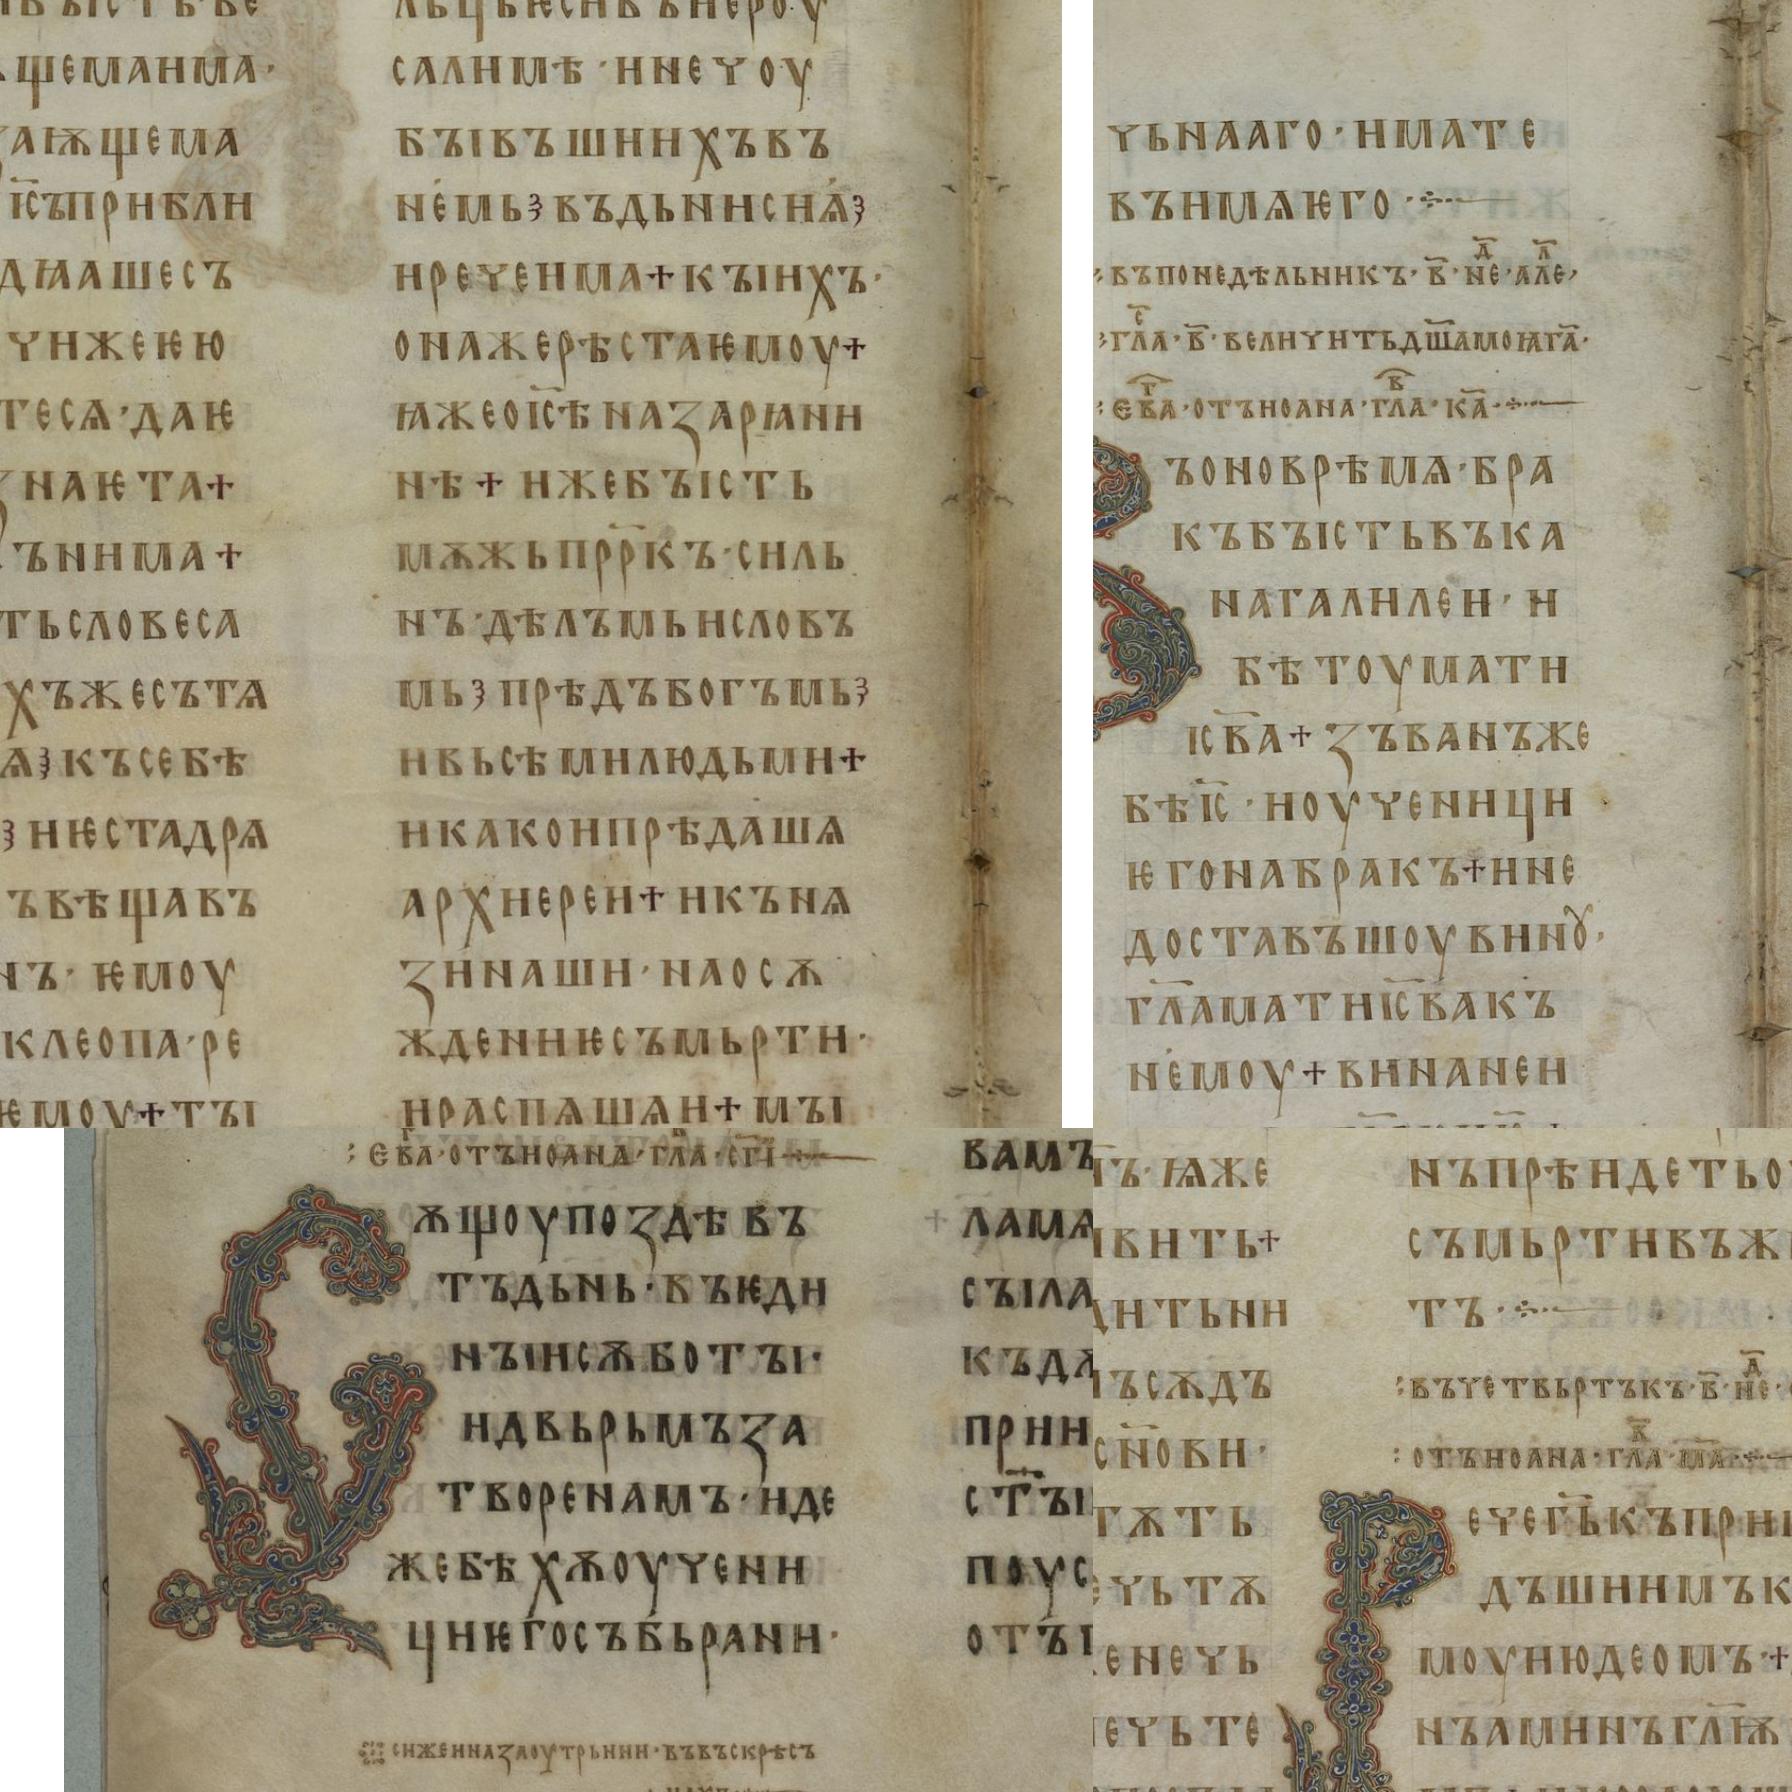 щеманма·
аѭщема
іс̅ъприбли
дꙗашесъ
чижеюю
тесѧ·даѥ
ꙁнаѥта+
ъннма+
тьсловеса
хъжесътѧ
ѧꙁкъсебѣ
ꙁнюстадрѧ
ъвѣщавъ
нъ·ѥмоу
клеопа·ре
ѥмоу+тꙑ
льцьѥсивъиеро·у
салимѣ·инеуоу
бъівъшиихъвъ
не́мьꙁвъдьниси́ѧꙁ
иреченма+къіихъ·
онажерѣстаѥмоу+
ꙗжеоіс̅ѣнаꙁарꙗни
нѣ+ижебъість
мѫжьпррк̅ъ·силь
нъ·дѣлъмьисловъ
мьꙁпрѣдъбогъмьꙁ
ивьсѣмилюдьми+
икакоипрѣдашѧ
архиереи+икънѧ
ꙁинаши·наосѫ
ждениѥсъмьрти·
ираспѧшѧи+мъі
чьнааго·имате
вънмѧѥго·
въпонедѣльникъ·в̅·не·але
гла·в̅·величитъдш̅амоꙗга̅·
ев̅а·отъиоана·гл̅а·ка̅·
ъоноврѣмѧ·бра
къбъістьвъка
нагалилеи·и
бѣтоумати
ісв̅а+ꙁъванъже
бѣіс̅·иоученици
ѥгонабракъ+ине
доставъшоувинꙋ·
гл̅аматиіс̅вакъ
не́моу+винанеи
ев̅а·отъиоана·гл̅а·сгі̅
ѫщоупоꙁдѣвъ
тъдьнь·въѥди
нъіисѫботъі·
идвьрьмъꙁа
творенамъ·иде
жебѣхѫоучени
циѥ́госъбьрани·
сижеинаꙁаоутрьнии·въвъскрѣсъ
вамъ
ламѧ
съіла
къда
прии
ст̅ъі
поус
отъі
ъ·ꙗже
ивить+
дитьни
ъсѫдъ
сн̅ови·
гѫть
чьтѫ
енечь
ечьте
нъпрѣидетьо
съмьртивъжи
тъ·
въчетвьртъкъ·в̅·не̅·
отъиоана·гл̅а·ма̅·
ечегь̅къпри
дъшиимък
моуиюдеомъ·+
нъаминъгл̅ѭ